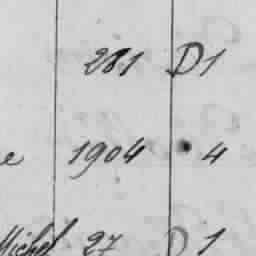 281 D1
e 1904 • 4
Michel 27 D 1